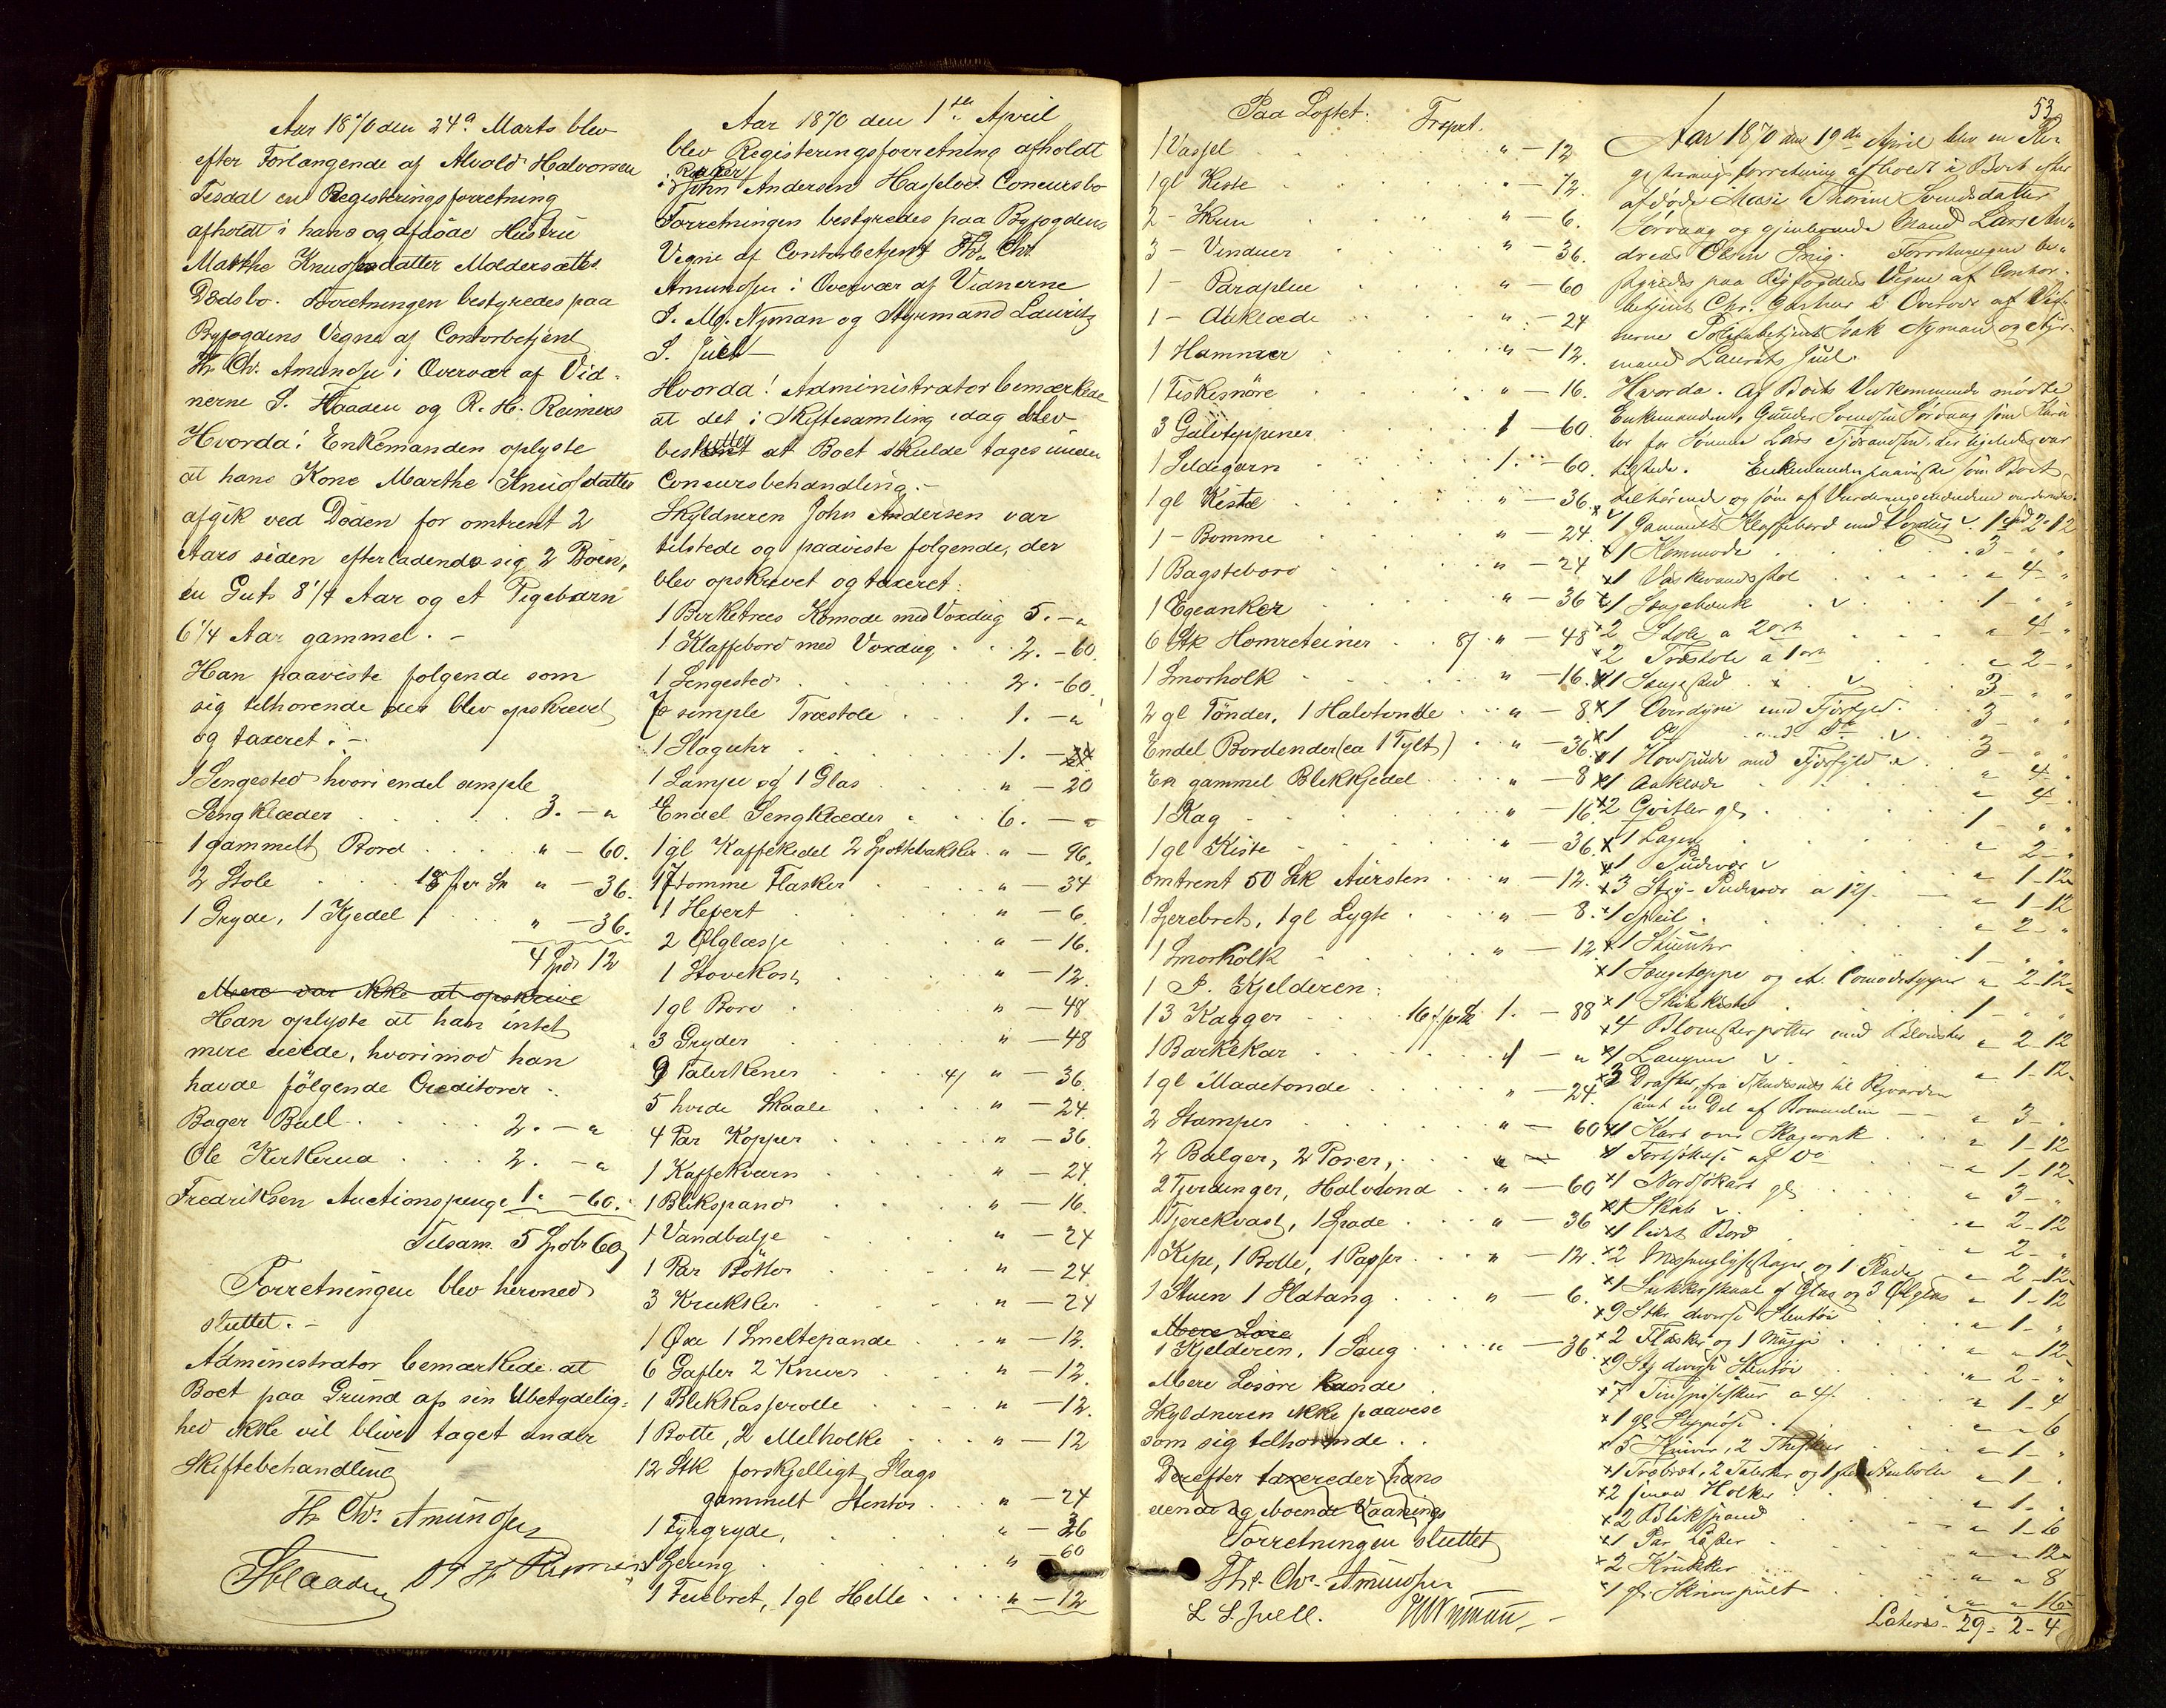 Aar 1870 den 24de Marts blev
efter Forlangende af Alvald Halvorsen
Tesdal en Registeringsforretning
afholdt i hans og afdöde Hustru
Marthe Knudsdatter Moldersættes
Dödsbo. Forretningen bestyredes paa
Byfogdens Vegne af Contorbetjent
Th. Chr. Amundsen i Overvær af Vid-
nerne S. Haaden og R. H. Reimers
Hvorda! Enkemanden oplyste
at hans Kone Marthe Knudsdatter
afgik ved Döden for omtrent 2
Aars siden efterladende sig 2 Börn,
en Gut 8 1/4 Aar og et Pigebarn
6 1/4 Aar gammel. -
Han paaviste folgende som
sig tilhorende der blev opskrevet
og taxeret. -
1 Sengested hvori endel simple
Sengklæder . . . 3. - "
1 gammelt Bord . . . " - 60.
2 Stole . . 18 s per St " - 36.
1 Gryde, 1 Kjedel . . " - 36.
4 Spd 12
Mere var ikke at opskrive
Han oplyste at han intet
mere eiede, hvorimod han
havde fölgende Creditorer:
Bager Bull . . . 2. - "
Ole Kirkerud . . . 2. - "
Fredriksen Auctionspenge 1. - 60.
Tilsam. 5 Spdr 60
Forretningen blev hermed
sluttet. -
Administrator bemærkede at
Boet paa Grund af sin Ubetydelig-
hed ikke vil blive taget under
Skiftebehandling
Th. Chr. Amundsen
S Haaden R H Reimers
Aar 1870 den 1ste April
blev Registeringsforretning afholdt
i John Andersen Hasselvs Concursbo
Forretningen bestyredes paa Byfogdens
Vegne af Contorbetjent Th. Chr.
Amundsen i Overvær af Vidnerne
I. M. Nyman og Styrmand Lauritz
S. Juel -
Hvorda! Administrator bemærkede
at det i Skiftesamling idag blev
besluttet at Boet skulde tages under
Concursbehandling. -
Skyldneren John Andersen var
tilstede og paaviste folgende, der
blev opskrevet og taxeret:
1 Birketræes Komode med Voxdug 5. - "
1 Klaffebord med Voxdug . . 2. - 60.
1 Sengested . . . 2. - 60.
simple Træstole . . . 1. - "
1 Slaguhr . . . 1. - 24
1 Lampe og 1 Glas . . . " - 20
Endel Sengklæder . . . 6. - "
1 gl Kaffekedel 2 Spottebakker . " - 96.
17 tomme Flasker . . . " - 34
1 Hevert . . . " - 6.
2 Ölglasse . . . " - 16.
1 Stovekost . . . " - 12.
1 gl Bord . . . " - 48
3 Gryder . . . " - 48
9 Talerkener . . 4/ " - 36.
5 hvide Skaale . . . " - 24.
4 Par Kopper . . . " - 36.
1 Kaffekværn . . . " - 24.
1 Blikspand . . . " - 16.
1 Vandbalje . . . " - 24
1 Par Bötter . . . " - 24.
3 Krukker . . . " - 24
1 Öxe 1 Smeltepande . . . " - 12.
6 Gafler 2 Knive . . . " - 12.
1 Blikkasserolle . . . " - 12.
1 Botte, 2 Melholke . . . " - 12
12 Stk forskjelligt Slags
gammelt Stentöi . . . " - 24
1 Tyrgryde, . . . " - 36
1 Sering . . . " - 60
1 Feiebret, 1 gl Helle . . . " - 12
Paa Loftet: Trspt.
1 Vassel . . . " - 12
1 gl Kiste . . . " - 12.
2 - Skrin . . . " - 6.
3 - Vinduer . . . " - 36.
1 - Paraplue . . . " - 60
1 - Aaklæde . . . " - 24
1 Hammer . . . " - 12.
1 Fiskesnöre . . . " - 16.
3 Gulvteppener . . . 1 - 60.
1 Sildegarn . . . 1. - 60.
1 gl Kiste . . . " - 36.
1 - Bomme . . . " - 24.
1 Bagstebord . . . " - 24
1 Egeanker . . . " - 36
6 Stk Homreteiner . . 8/ " - 48
1 Smorholk . . . " - 16.
2 gl Tönder, 1 Halvtonde . . " - 8.
Endel Bordender (ca 1 Tylt) . . " - 36.
En gammel Blikkjedel . . . " - 8
1 Kag . . . " - 16.
1 gl Kiste . . . " - 36.
omtrent 50 Stk Aursten . . . " - 12.
1 Skjerebret, 1 gl Lygte . . . " - 8.
1 Smorholk . . . " - 12
I Kjelderen:
13 Kagger . . 16 s per St 1. - 88
1 Barkekar . . . 1 - "
1 gl Madetonde . . . " - 24.
2 Stamper . . . " - 60
2 Balger, 2 Poser,
2 Fjerdinger, Halvtond . . " - 60
1 Tjerekvast, 1 Spade . . " - 36
1 Kipe, 1 Bolle, 1 Passer . . " - 12.
1 Skuen 1 Ildtang . . . " - 6.
Mere Löse
I Kjelderen, 1 Saug . . . " - 36.
Mere Lösöre kunde
Skyldneren ikke paavise
som sig tilhorende. .
Derefter taxereder hans
eiende og iboende Vaaning
Forretningen sluttet
Th. Chr. Amundsen
L S. Juell. IMNyman
53
Aar 1870 den 19de April blev en Re-
gistreringsforretning afholdt i Boet efter
afdöde Mari Thorine Svendsdatter
Sörvaag og gjenlevende Mand Lars An-
dreas Olsen Snig. Forretningen be-
styredes paa Byfogdens Vegne af Contor-
betjent Chr. Garhus i Overvær af Vid-
nerne Politibetjent Isak Nyman og Styr-
mand Laurits Juul.
Hvorda. Af Boets Vedkommende mödte
Enkemanden, Gunder Svendsen Sörvaag som Kura-
tor for Sönnen Lars Tjörandsen, der ligeledes var
tilstede. Enkemanden paaviste som Boet
tilhörende og som af Vurderingsmændene vurderedes:
1 Gammelt Klaffebord med Voxdug 1 Spd 2 - 12
1 Kommode . . . 3 - " "
1 Vaskevandsstol . . . " 4 - "
1 Sengebænk . . . 1 - " "
2 Stole a 2 ort . . . " 4 - "
2 Træstole a 1 ort . . . " 2 - "
1 Sengested . . . 3 - " "
1 Overdyne med Fjörfyld . . 3 - " "
1 " " Do . . 3 - " "
1 Hovedpude med Fjörfyld . . " 4 - "
1 Aaklæde . . . " 4 - "
2 Gvitler gl. . . . 1 - " "
1 Lagen . . . " 2 - "
1 Pudevar . . . " 1 - 12
3 Stry-Pudevar a 12/. . . " 1 - 12
1 Speil . . . " 2 - "
1 Stueuhr . . . 1 - " "
1 Sengeteppe og et Comodeteppe " 2 - 12
1 Skibskiste . . . 1 - " "
4 Blomsterpotter med Blomster " 2 - 12
1 Lampe . . . " 1 - 12
3 Drafter, fra Skudesnæs til Ryvarden
samt en Del af Bommelen . . " 3 - "
1 Kart over Skagerak . . . " 1 - 12
1 Do . . . " 1 - 12
1 Nordsökart gl. . . . " 3 - "
1 Skab . . . " 2 - 12
1 lidet Bord . . . " 2 - "
2 Messinglysestager og 1 Plade " 2 - 12
1 Sukkerskaal af Glas og 3 Ölglas " 1 - 12
9 Stkr diverse Stentöi . . . " 1 - "
2 Flasker og 1 Mugge . . . " " 12
9 Stk diverse Stentöi . . . " 2 - "
7 Tinspiseskeer a 4/. . . " 1 - 4
1 gl. Slipsöse . . . " " 6
5 Knive, 2 Theskeer . . . " 1 - "
1 Træbret, 2 Talerkner og 1 Stenbolle " 1 - "
2 smaa Holker . . . " 1 - "
2 Blikspand . . . " 1 - 6
1 Par Lester . . . " " 12
2 Krukker . . . " " 8
1 gl. Skriverpult . . . " " 16
Lateris - 29 - 2 - 4